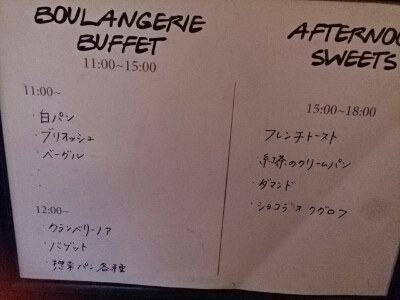 BOULANGERIE
BUFFET
11:00~15:00
11:00~
・白パン
・ブリオッシュ
・ベーグル
・
・
12:00~
・クランベリーノア
・バゲット
・惣菜パン各種
AFTERNOO
SWEETS
15:00~18:00
フレンチトースト
・紅茶のクリームパン
・ダマンド
・ショコラオクグロフ